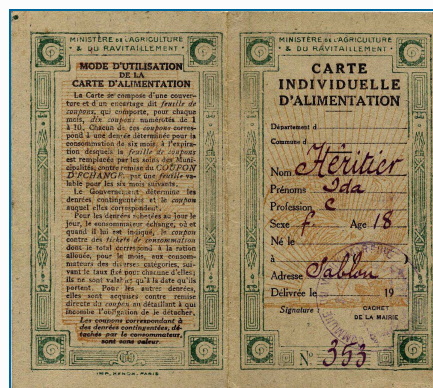 MINISTÈRE DE L'AGRICULTURE
& DU RAVITAILLEMENT
MODE D'UTILISATION
DE LA
CARTE D'ALIMENTATION
La Carte se compose d'une couver-
ture et d'un encartage dit feuille de
coupons, qui comporte, pour chaque
mois, dix coupons numérotés de 1
à 10. Chacun de ces coupons corres-
pond à une denrée déterminée pour la
consommation de six mois, à l'expira-
tion desquels la feuille de coupons
est remplacée par les soins des Muni-
cipalités, contre remise du COUPON
D'ÉCHANGE, par une feuille va-
lable pour les six mois suivants.
Le Gouvernement détermine les
denrées contingentées et le coupon
auquel elles correspondent.
Pour les denrées achetées au jour le
jour, le consommateur échange, où et
quand il lui est indiqué, le coupon
contre des tickets de consommation
dont le total correspond à la ration
allouée, pour le mois, aux consom-
mateurs des diverses catégories, sui-
vant le taux fixé pour chacune d'elles;
ils ne sont valables qu'à la date qu'ils
portent. Pour les autres denrées,
elles sont acquises contre remise
directe du coupon au détaillant à qui
incombe l'obligation de le détacher.
Les coupons correspondant à
des denrées contingentées, dé-
tachés par le consommateur,
sont sans valeur.
IMP. KERCK, PARIS
MINISTÈRE DE L'AGRICULTURE
& DU RAVITAILLEMENT
CARTE
INDIVIDUELLE
D'ALIMENTATION
Département d
Commune d
Nom Héritier
Prénoms Ida
Profession C
Sexe f. Age 18
Né le
à
Adresse Sablon
Délivrée le 19
Signature : CACHET
DE LA MAIRIE
No 353